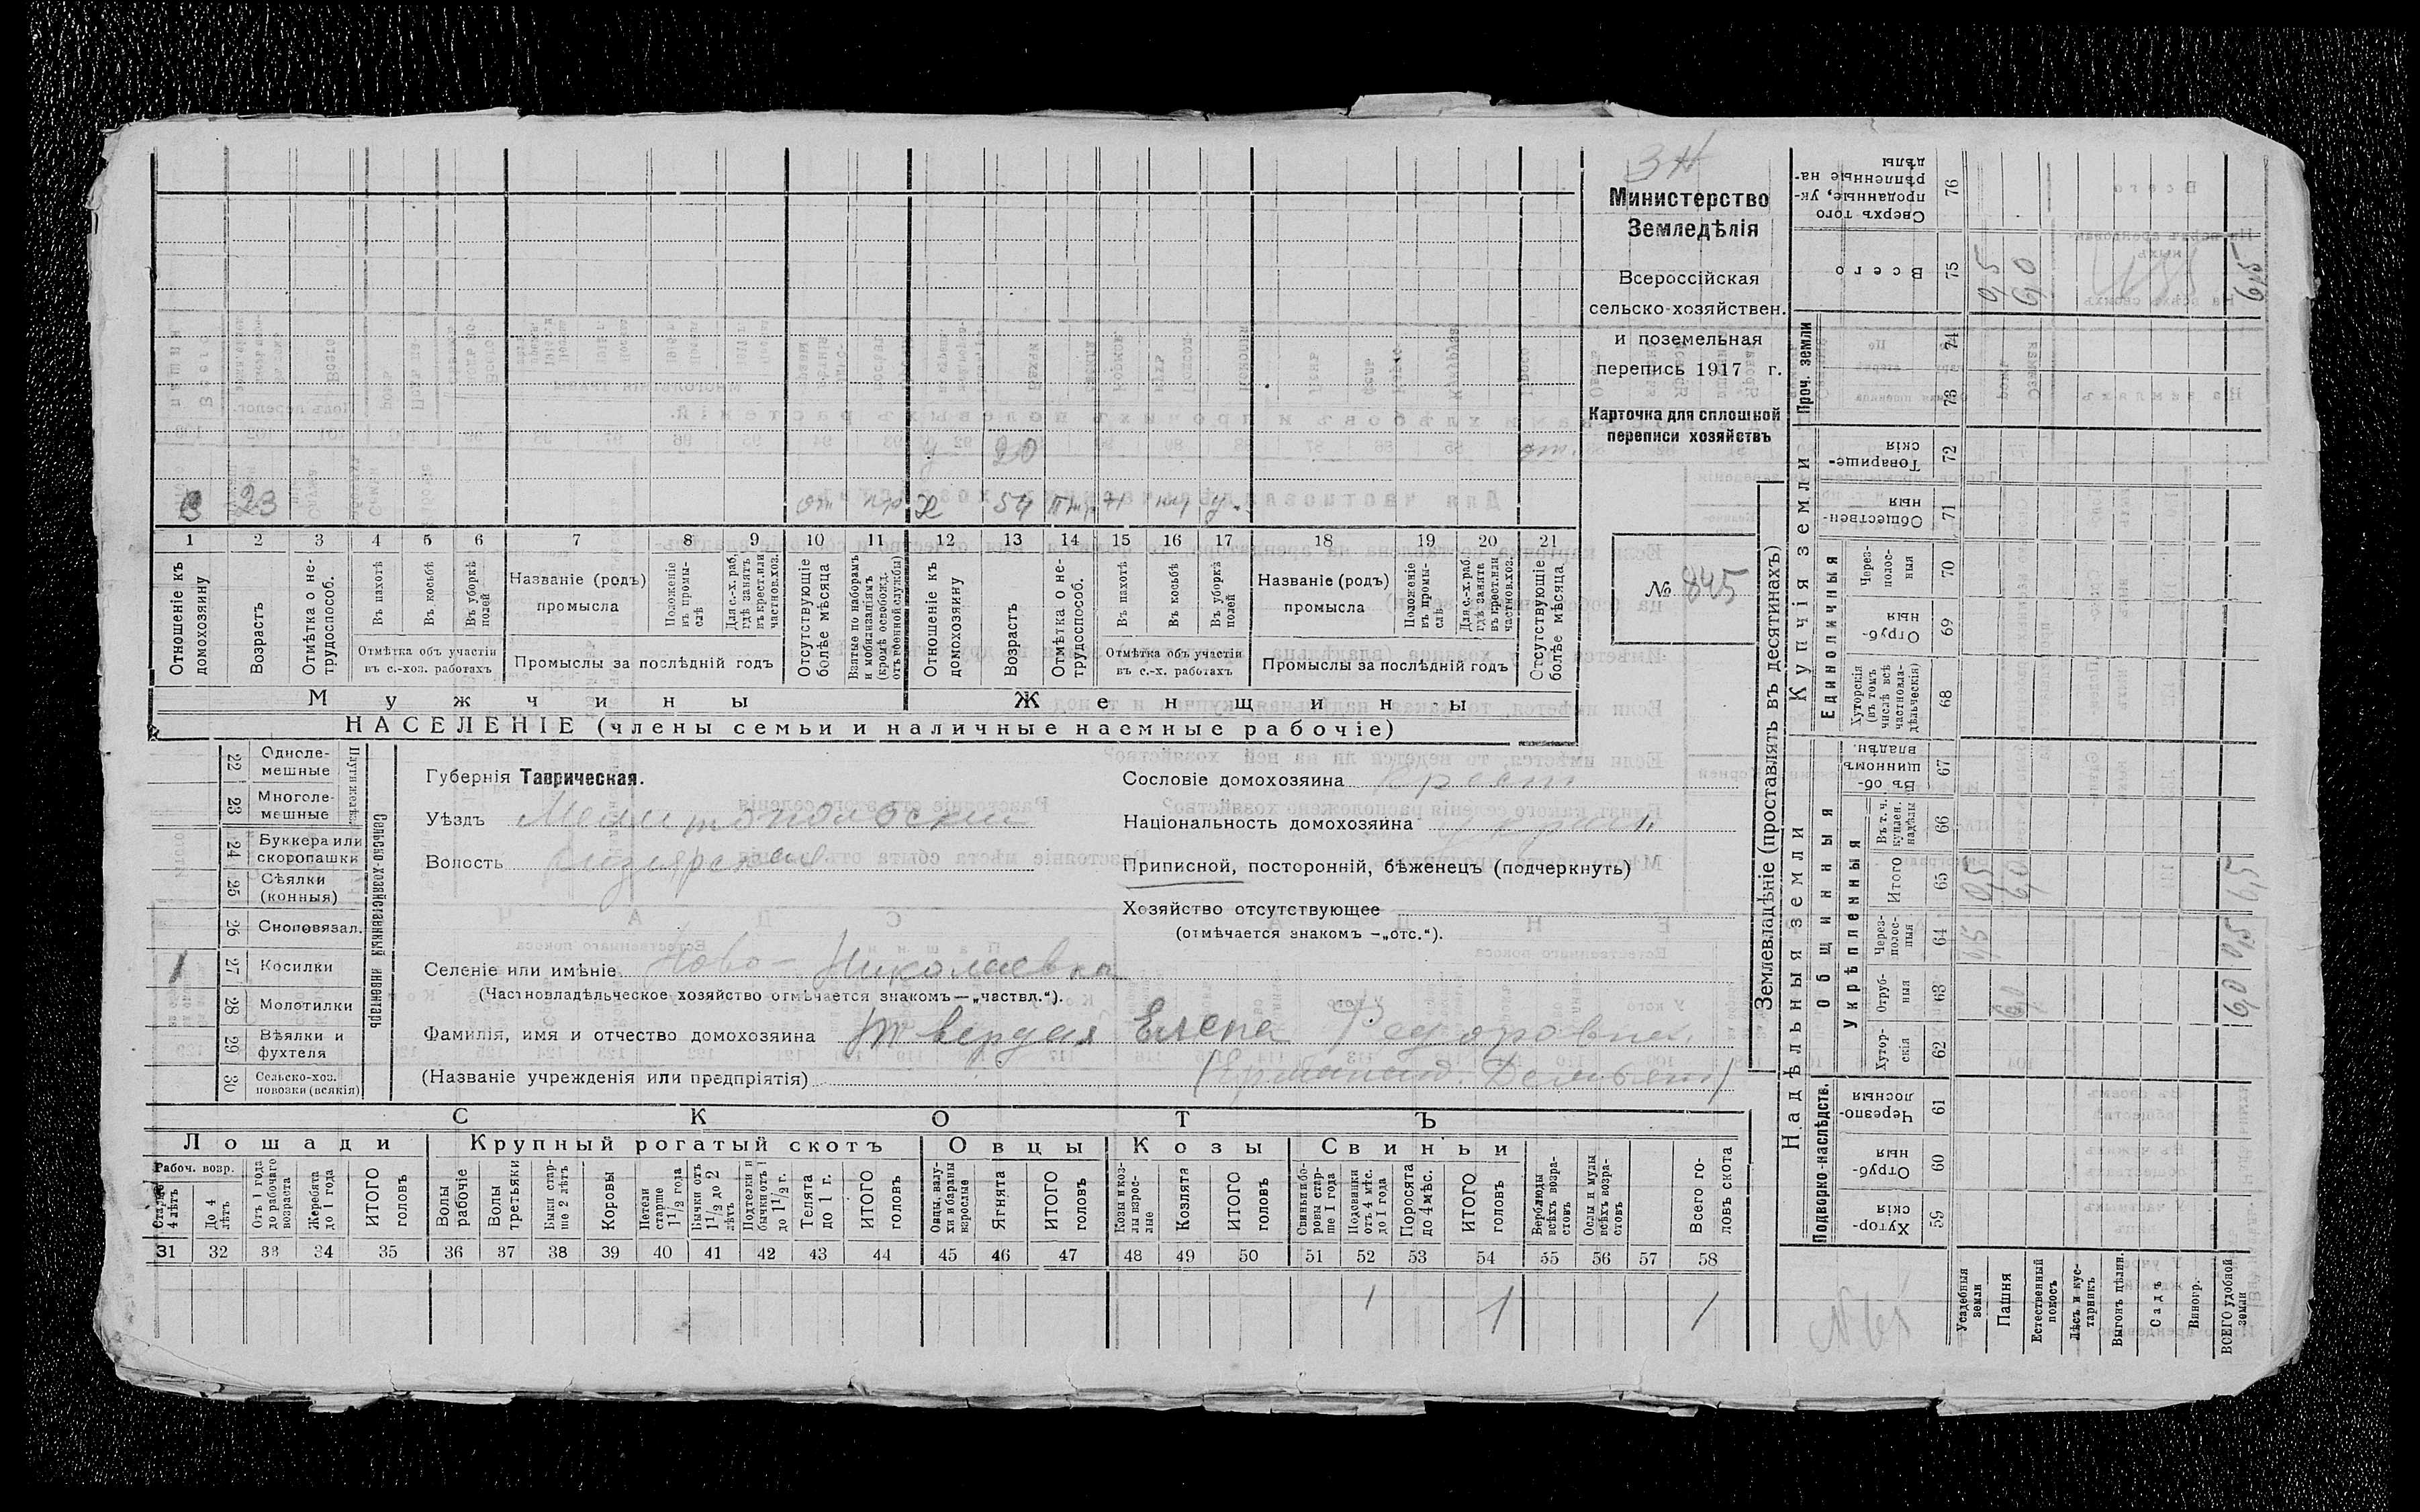 3
Министерство
Земледѣлія
Всероссійская
сельско-хозяйствен.
и поземельная
перепись 1917 г.
Карточка для сплошной
переписи хозяйствъ
№ 845
20
от.
23
от Х 54 Н у.
1 2 3 4 5 6 7 8 9 10 11 12 13 14 15 16 17 18 19 20 21
Отношеніе къ домохозяину
Возрастъ
Отмѣтка о не-трудоспособ.
Въ пахотѣ
Въ косьбѣ
Въ уборкѣ полей
Отмѣтка объ участіи
въ с.-хоз. работахъ
Названіе (родъ)
промысла
Положеніе въ промы-слѣ
Для с.-х. раб. гдѣ занятъ въ крест. или частнов. хоз.
Промыслы за послѣдній годъ
Отсутствующіе болѣе мѣсяца
Взятые по наборамъ и мобилизаціямъ (кромѣ освобожд. отъ военной службы)
Отношеніе къ домохозяину
Возрастъ
Отмѣтка о не-трудоспособ.
Въ пахотѣ
Въ косьбѣ
Въ уборкѣ полей
Отмѣтка объ участіи
въ с.-х. работахъ
Названіе (родъ)
промысла
Положеніе въ промы-слѣ
Для с.-х. раб. гдѣ занята въ крест. или частнов. хоз.
Промыслы за послѣдній годъ
Отсутствующіе болѣе мѣсяца
Мужчины Женщины
НАСЕЛЕНІЕ (члены семьи и наличные наемные рабочіе)
22 Одноле-мешные
23 Многоле-мешные
24 Буккера или скоропашки
25 Сѣялки (конныя)
26 Сноповязал.
1 27 Косилки
28 Молотилки
29 Вѣялки и фухтеля
30 Сельско-хоз. повозки (всякія)
Сельско-хозяйственный инвентарь
Губернія Таврическая.
Уѣздъ Мелитопольскій
Волость
Селеніе или имѣніе Ново-Николаевка
(Частновладѣльческое хозяйство отмѣчается знакомъ—„частвл.“).
Фамилія, имя и отчество домохозяина Твердая Елена Федоровна.
(Названіе учрежденія или предпріятія)
Сословіе домохозяина Крест
Національность домохозяина украи
Приписной, посторонній, бѣженецъ (подчеркнуть)
Хозяйство отсутствующее
(отмѣчается знакомъ —„отс.“).
СКОТЪ
Лошади Крупный рогатый скотъ Овцы Козы Свиньи
Рабоч. возр.
Старше 4 лѣтъ
До 4 лѣтъ
Отъ 1 года до рабочаго возраста
Жеребята до 1 года
ИТОГО головъ
Волы рабочіе
Волы третьяки
Быки стар-ше 2 лѣтъ
Коровы
Нетели старше 1 1/2 года
Бычки отъ 1 1/2 до 2 лѣтъ
Подтелки и бычки отъ 1 до 1 1/2 г.
Телята до 1 г.
ИТОГО головъ
Овцы, валу-хи и бараны взрослые
Ягнята
ИТОГО головъ
Козы и коз-лы взрос-лые
Козлята
ИТОГО головъ
Свиньи и бо-ровы стар-ше 1 года
Подсвинки отъ 4 мѣс. до 1 года
Поросята до 4 мѣс.
ИТОГО головъ
Верблюды всѣхъ возра-стовъ
Ослы и мулы всѣхъ возра-стовъ
Всего го-ловъ скота
31 32 33 34 35 36 37 38 39 40 41 42 43 44 45 46 47 48 49 50 51 52 53 54 55 56 57 58
1 1 1
Землевладѣніе (проставлять въ десятинахъ)
Надѣльныя земли Купчія земли Проч. земли
Подворно-наслѣдств.
Общинныя
Укрѣпленныя
Единоличныя
Хутор-скія 59
Отруб-ныя 60
Черезпо-лосныя 61
Хутор-скія 62
Отруб-ныя 63
Через-полос-ныя 64
Итого 65
Въ т. ч. куплен. надѣлы 66
Въ об-щинномъ владѣн. 67
Хуторскія (въ томъ числѣ всѣ частновла-дѣльческія) 68
Отруб-ныя 69
Через-полос-ныя 70
Обществен-ныя 71
Товарище-скія 72
73
74
Всего 75
Сверхъ того проданные, ук-рѣпленные на-дѣлы 76
Усадебныя земли 0,5 0,5 0,5
Пашня 6,0 6,0 6,0
Естественный покосъ
Лѣсъ и кус-тарникъ
Выгонъ цѣлин.
Садъ
Виногр.
ВСЕГО удобной земли 6,0 0,5 6,5 6,5